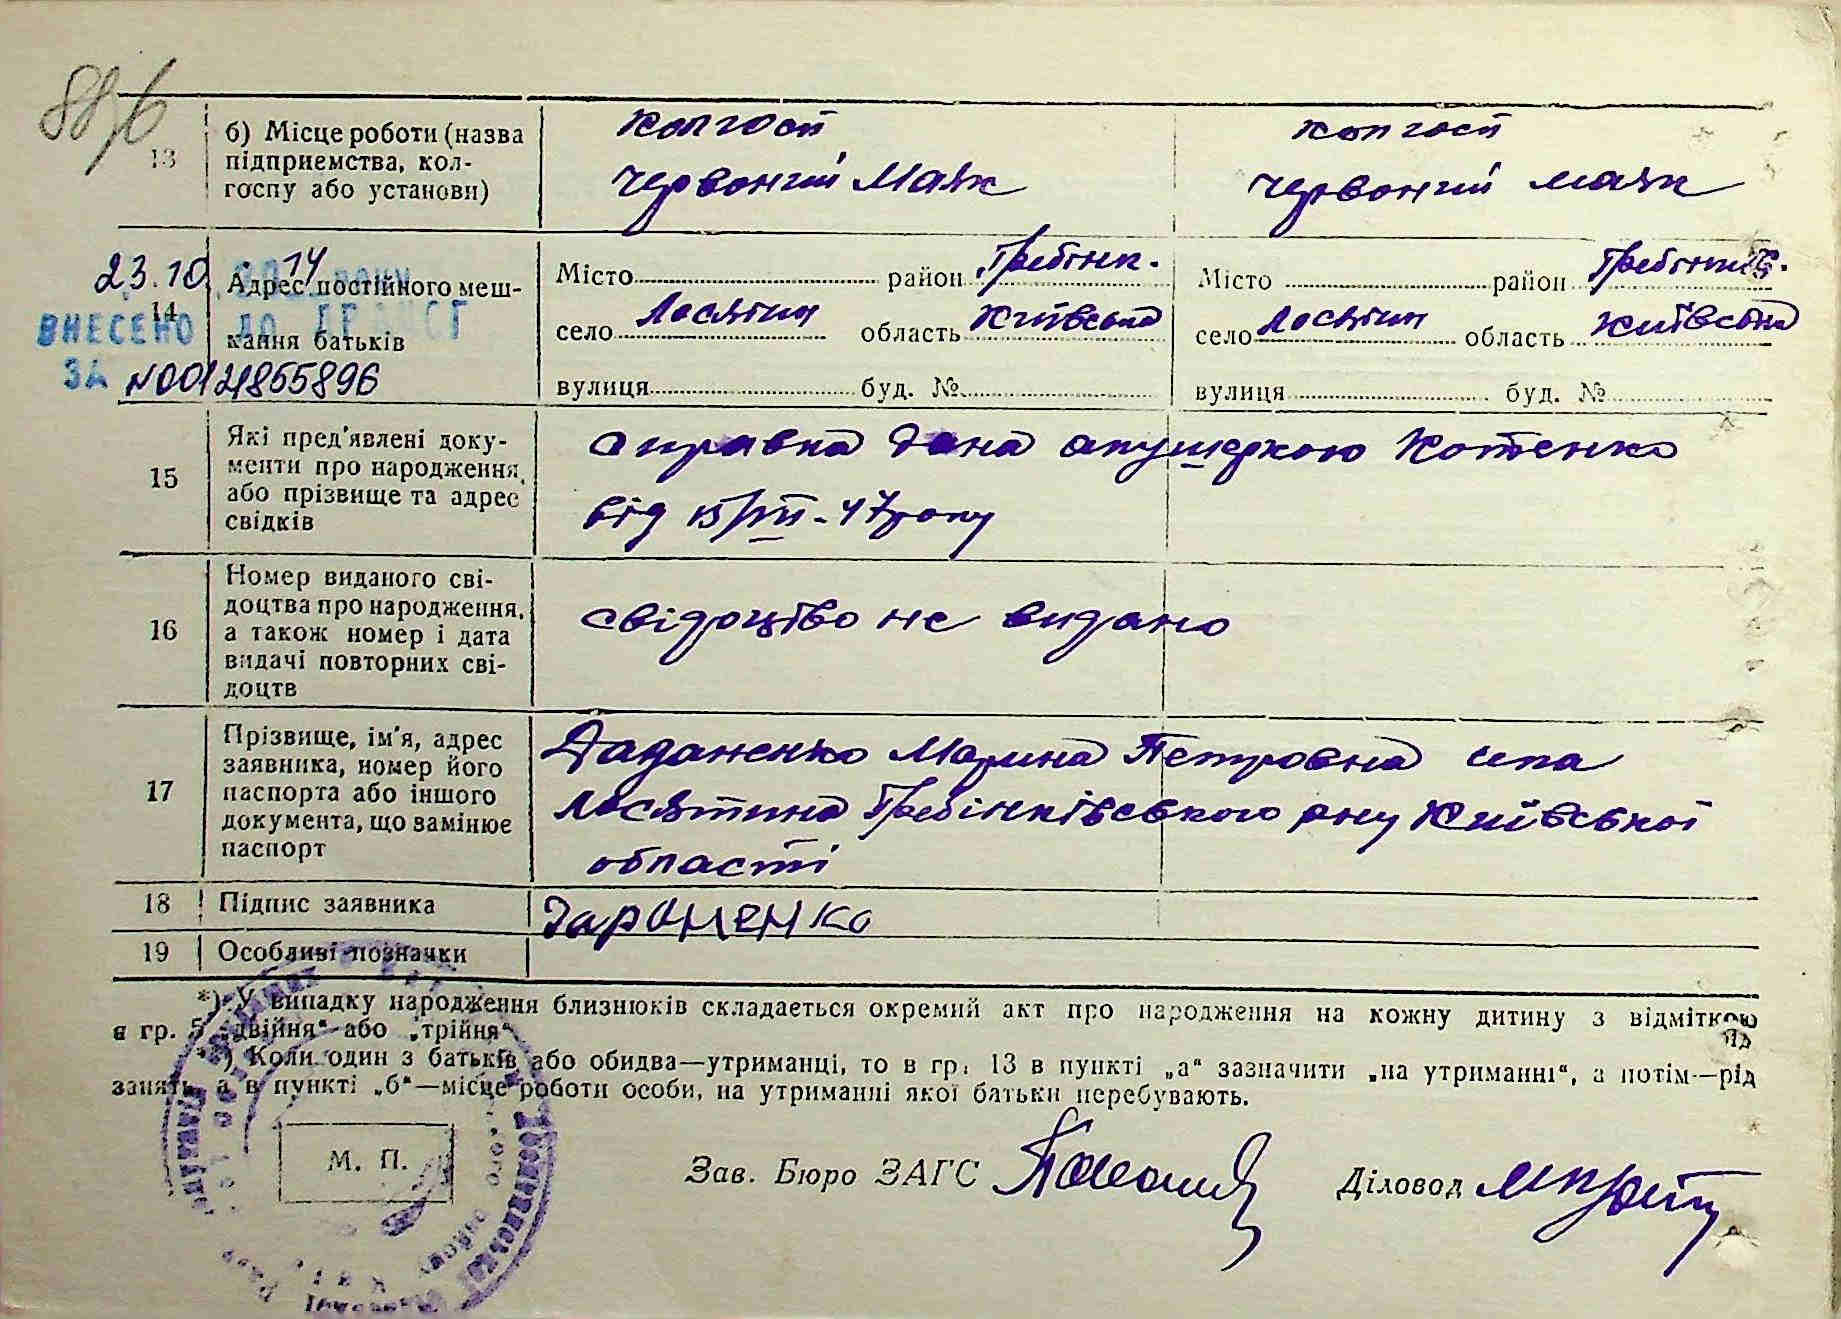 88/6
13 б) Місце роботи (назва підприемства, колгоспу або установи)
колгосп колгосп
Червоний Маяк Червоний маяк
23.10 14 року
ВНЕСЕНО ДО ДРАЦСГ
ЗА №00124855896
14 Адрес постійного мешкання батьків
Місто район Гребінк. Місто район Гребінків.
село Лосятин область Київська село Лосятин область Київська
вулиця буд. № вулиця буд. №
15 Які пред'явлені документи про народження, або прізвище та адрес свідків
справка дана акушеркою Котенко
від 15/VII-47 року
16 Номер виданого свідоцтва про народження, а також номер і дата видачі повторних свідоцтв
свідоцтво не видано
17 Прізвище, ім'я, адрес заявника, номер його паспорта або іншого документа, що замінює паспорт
Марина Петровна села
Лосятина Гребінківського р-ну Київської
області
18 Підпис заявника
19 Особливі позначки
*) У випадку народження близнюків складається окремий акт про народження на кожну дитину з відміткою
в гр. 5 „двійня" або „трійня"
**) Коли один з батьків або обидва—утриманці, то в гр. 13 в пункті „а" зазначити „на утриманні", а потім—рід
занять, а в пункті „б"—місце роботи особи, на утриманні якої батьки перебувають.
М. П.
Зав. Бюро ЗАГС Діловод